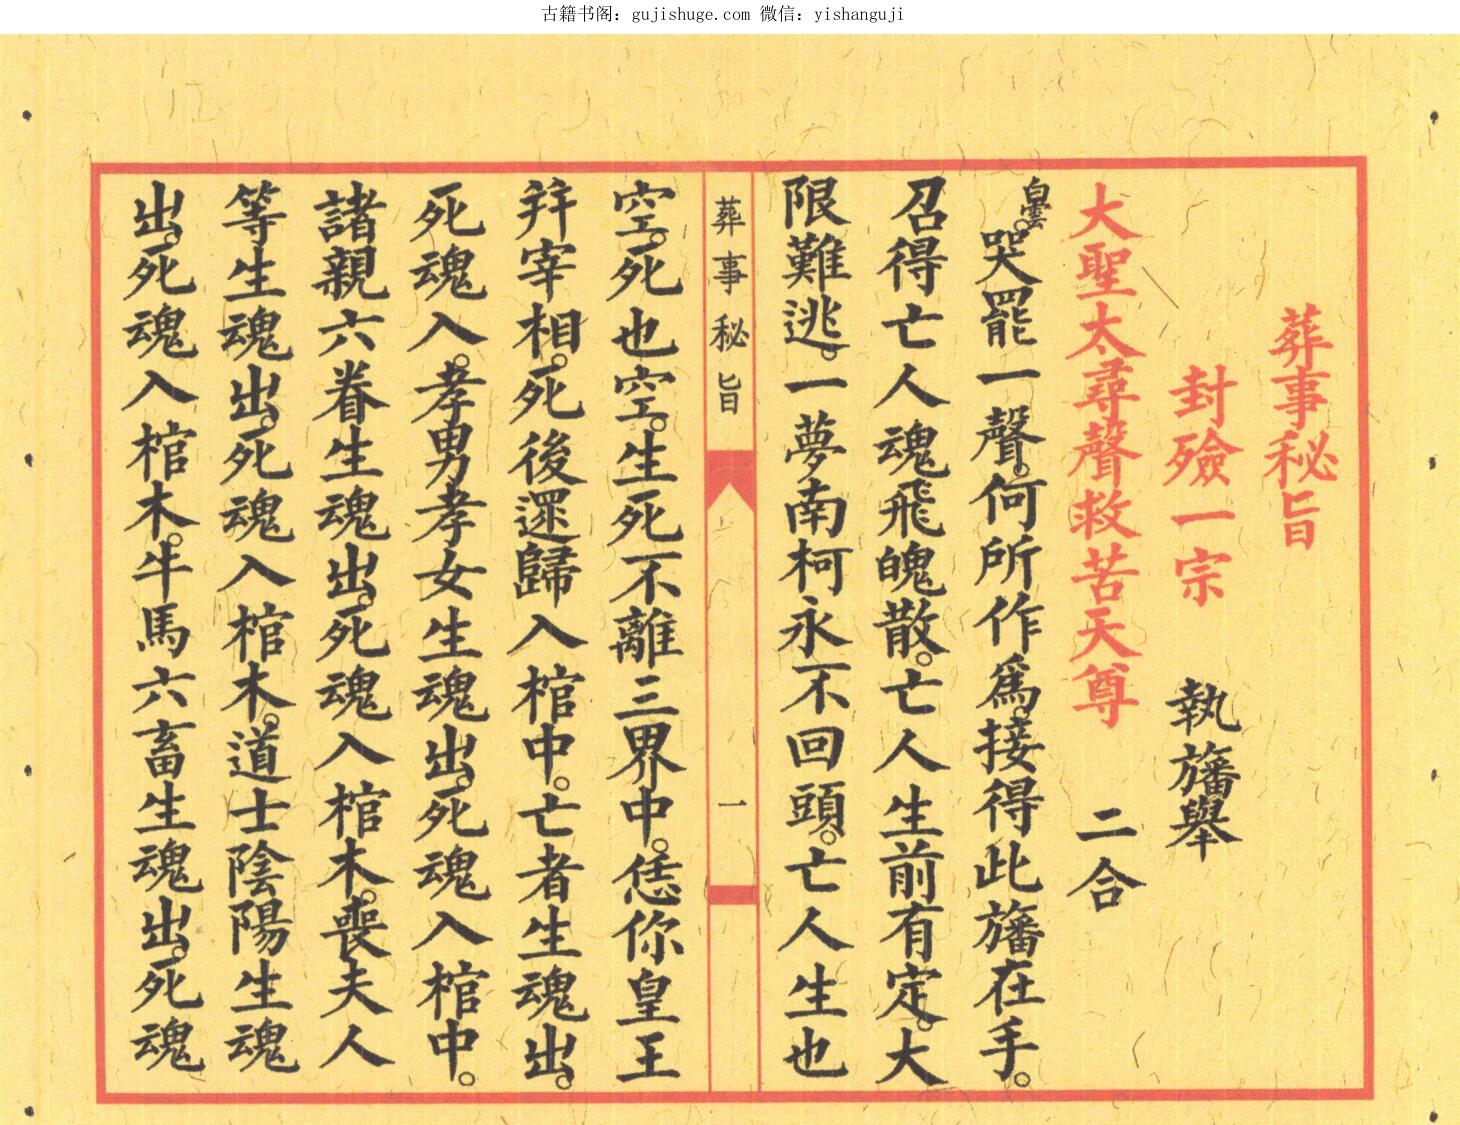 古籍书阁：gujishuge.com 微信：yishanguji
葬事秘旨
封殮一宗 執旛舉
大聖太尋聲救苦天尊 二合
皇雲。哭罷一聲。何所作爲。接得此旛在手。
召得亡人魂飛魄散。亡人生前有定。大
限難逃。一夢南柯永不回頭。亡人生也
葬事秘旨 一
空。死也空。生死不離三界中。恁你皇王
并宰相。死後還歸入棺中。亡者生魂出。
死魂入。孝男孝女生魂出。死魂入棺中。
諸親六眷生魂出。死魂入棺木。喪夫人
等生魂出。死魂入棺木。道士陰陽生魂
出。死魂入棺木。牛馬六畜生魂出。死魂